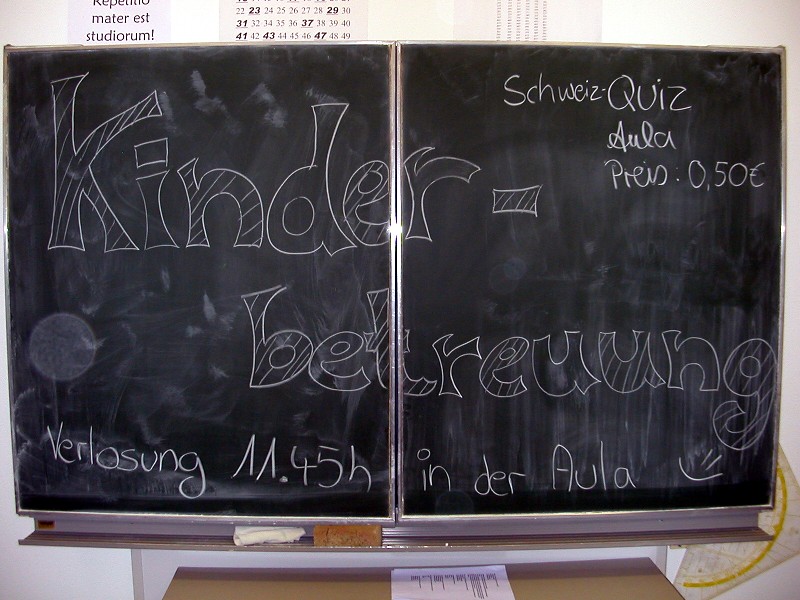 Repetitio
mater est
studiorum!
22 23 24 25 26 27 28 29 30
31 32 33 34 35 36 37 38 39 40
41 42 43 44 45 46 47 48 49
Schweiz-Quiz
Aula
Preis: 0,50€
Kinder-
betreuung
Verlosung 11.45h in der Aula